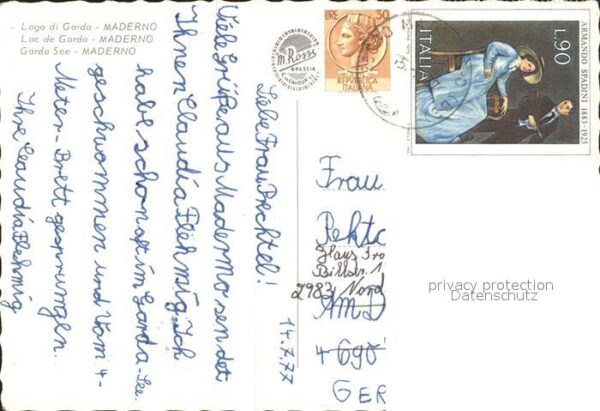 Lago di Garda - MADERNO
Lac de Garda - MADERNO
Garda See - MADERNO
Liebe Frau Brechtel!
Viele Grüße aus Maderno sendet
Ihnen Claudia Flehmig. Ich
habe schon oft im Garda-See
geschwommen und vom 4-
Meter-Brett gesprungen.
Ihre Claudia Flehmig
14.7.77
M. Rossi
BRESCIA
LIRE 30
REPVBBLICA
ITALIANA
ITALIA
L.90
ARMANDO SPADINI 1883-1925
Frau
Rekto
Billstr. 1
2983 Nord
Am D
GER
privacy protection
Datenschutz